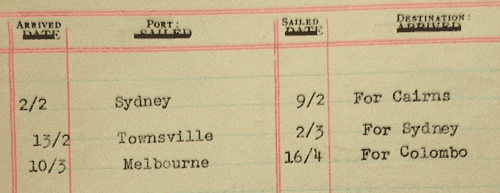 ARRIVED PORT: SAILED DESTINATION:
DATE SAILED DATE ARRIVED
2/2 Sydney 9/2 For Cairns
13/2 Townsville 2/3 For Sydney
10/3 Melbourne 16/4 For Colombo